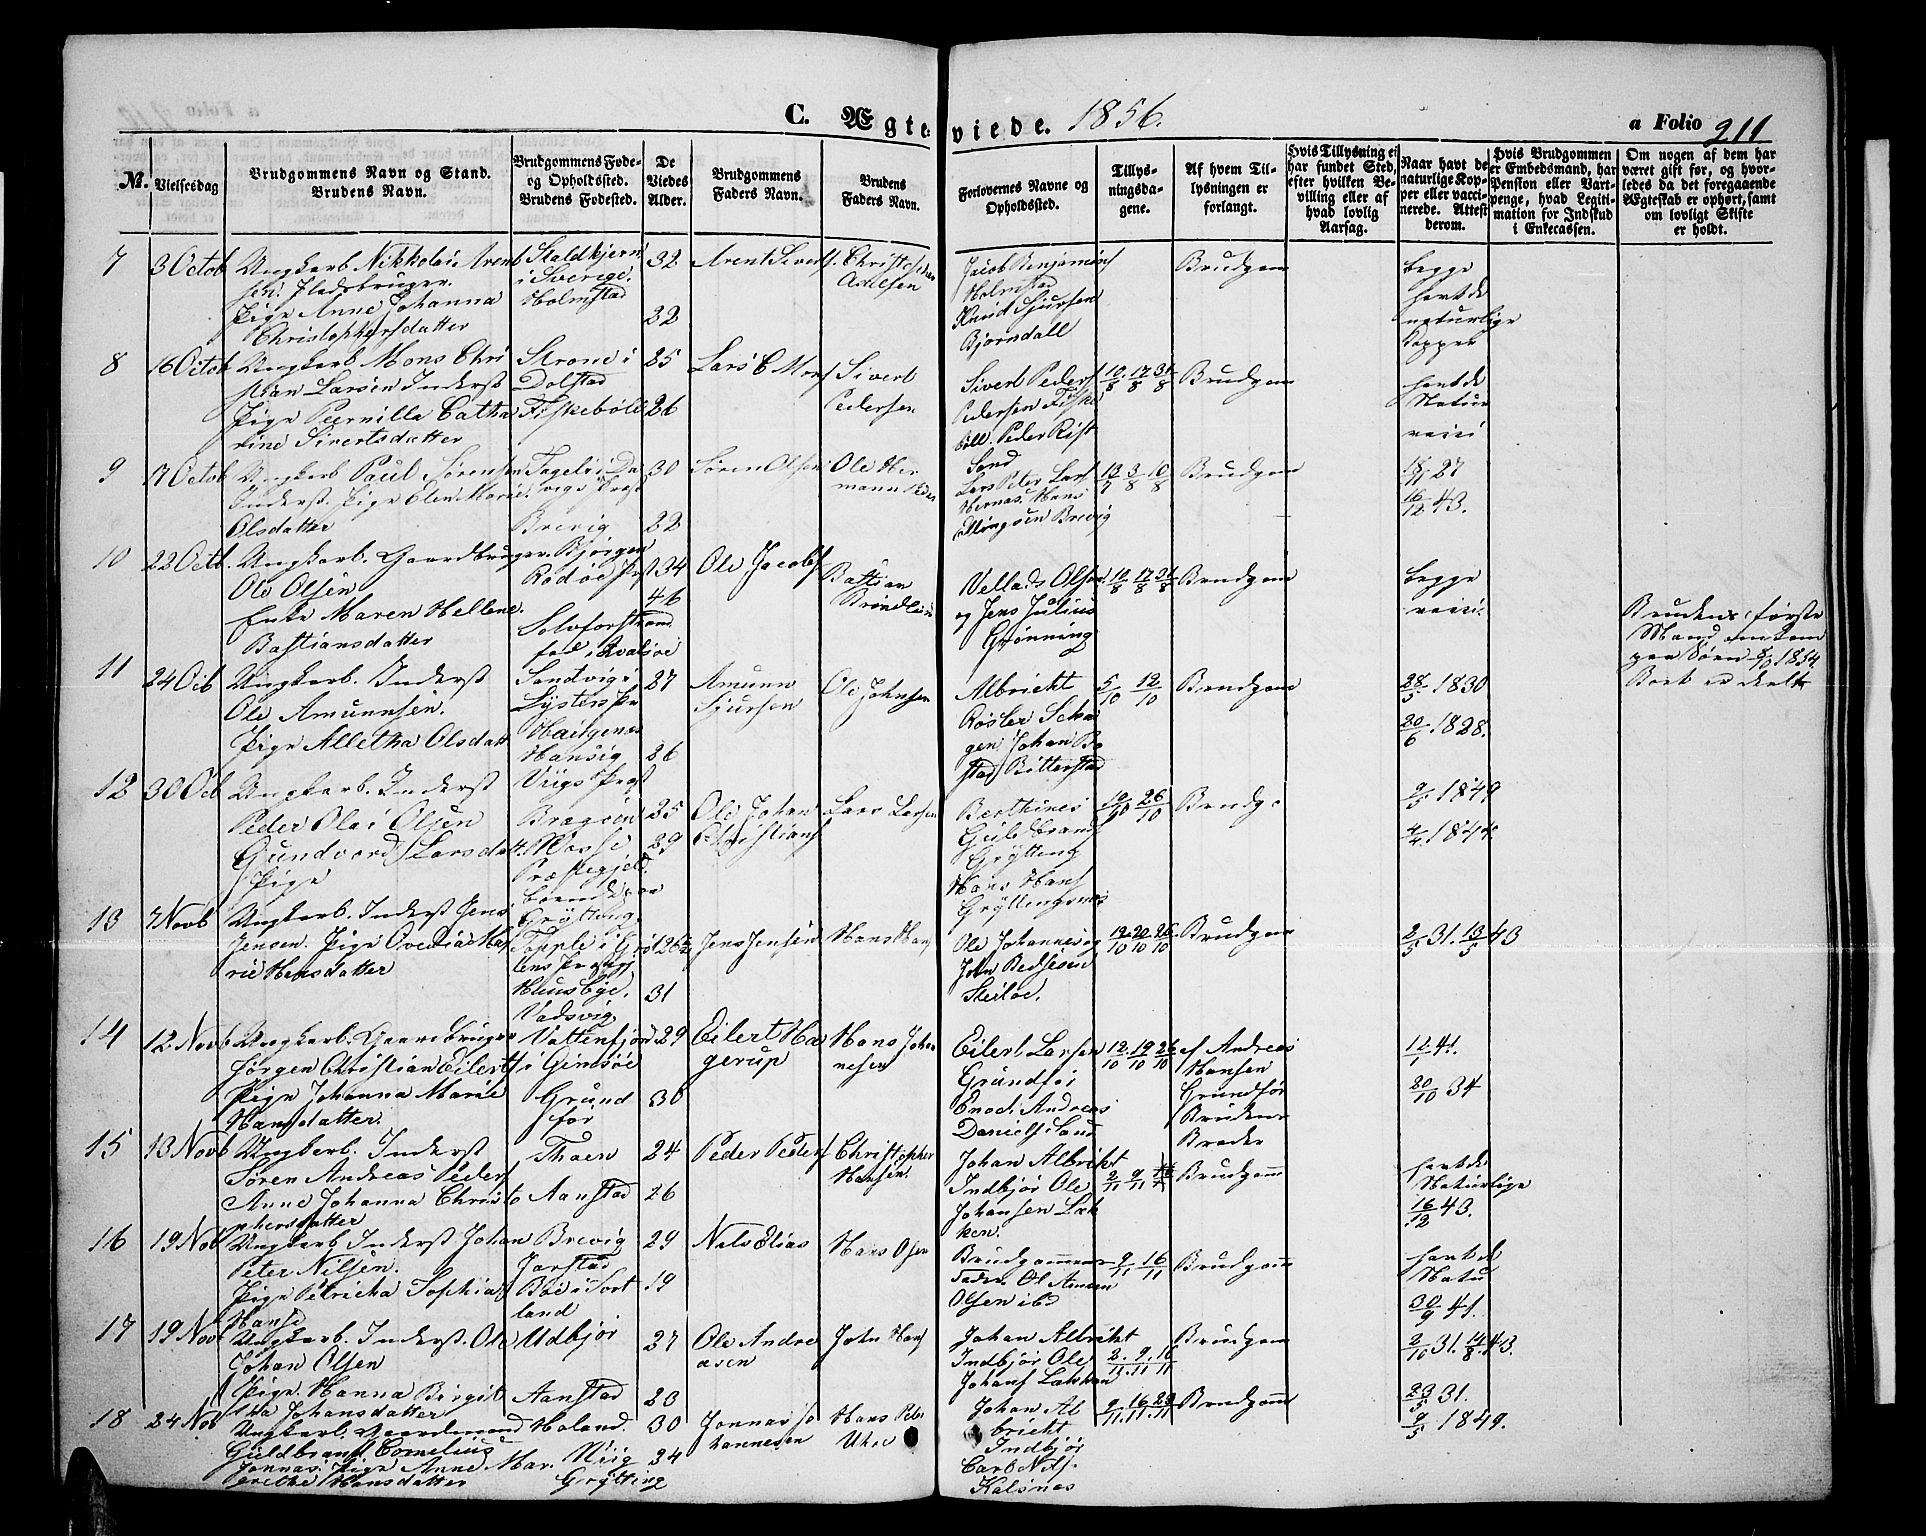 C. Ægteviede. 1856.
a Folio 211
No.
Vielsesdag
Brudgommens Navn og Stand.
Brudens Navn.
Brudgommens Føde-
og Opholdssted.
Brudens Fødested.
De
Viedes
Alder.
Brudgommens
Faders Navn.
Brudens
Faders Navn.
Forlovernes Navne og
Opholdssted.
Tillys-
ningsda-
gene.
Af hvem Til-
lysningen er
forlangt.
Hvis Tillysning ei
har fundet Sted,
efter hvilken Be-
villing eller af
hvad lovlig
Aarsag.
Naar havt de
naturlige Kop-
per eller vacci-
nerede. Attest
derom.
Hvis Brudgommen
er Embedsmand, har
Pension eller Vart-
penge, hvad Legiti-
mation for Indskud
i Enkecassen.
Om nogen af dem har
været gift før, og hvor-
ledes da det foregaaende
Ægteskab er ophørt, samt
om lovligt Skifte
er holdt.
7
3 Octob
Ungkarl Nikkolai Arent
sen. Pladsbruger.
Pige Anne Johanna
Christophersdatter
i Sverige.
Holmstad
32
32
Arent Siverts
Jacob Benjamins
Holmstad
Knud Sjursen
Bjørndall
Brudgom
begge
havt de
naturlige
Kopper
8
16 Octob
Ungkarl Mons Chri
stian Larsen Inderst
Pige Pernilla Catha
rine Sivertsdatter
Dolstad
Fiskebøll
25
26
Lars C Mons
Sivert
Pedersen
Sivert Peders
Pedersen Fiske
bøll. Peder Rist
Sand
10/8 17/8 31/8
Brudgom
havt de
Natur
vacci
9
17 Octob
Ungkarl Paul Sørensen
Inderst. Pige Elen Marie
Olsdatter
Brevig
30
22
Søren Olsen
Ole Her
mann
Lars Peter Lars
Hernæs. Hans
Ellingsen Brevig
13/7 3/8 10/8
Brudgom
27
16/12 43.
10
22 Octb.
Ungkarl. Gaardbruger.
Ole Olsen
Enke Maren Hellene
Bastiansdatter
Bjørgen
Rødøe Præst
34
46
Ole Jacobs
Bastian
Brøndlund
Vellads Olsen
og Jens Julius
Grønning
10/8 17/8 31/8
Brudgom
begge
vacci.
Brudens første
Mand omkom
paa Søen 1854.
Boet er deelt
11
24 Octb
Ungkarl. Inderst
Ole Amunnsen.
Pige Alletha Olsdatt
Sandvig i
Lysters Pr
Hansig
27
26
Amunn
Sjursen
Ole Johnsen
Albricht
Røsler Ska
gen Johan Bo
stad Bitterstad
5/10 12/10
Brudgom
28/5 1830
20/6 1828.
12
30 Oct
Ungkarl. Inderst
Peder Olai Olsen
Gundvord Larsdatt.
Pige
Viigs Præst
Præstegjeld.
Grytting.
25
29
Ole Johan
Christians
Lars Larsen
Berthines
Guldbrand
Grytting
Hans Hans
Gryttingsnes
19/10 26/10
Brudg.
9/5 1849
4/4 1844
13
7 Novb
Ungkarl. Inderst Jens
Jensen. Pige Ovedia Ma
rie Hansdatter
Huusbye.
Vadsvig
26½
31
Jens Jensen
Hans Hans
Ole Johannes og
John
Steiløe.
12/10 20/10 26/10
Brudgom
2/5 31. 13/5 43
14
12. Novb
Ungkarl. Gaardbruger
Jørgen Christian Eilerts
Pige Johanna Marie
Hansdatter.
Vattenfjord
i Gimsøe
Grund
før
29
30
Eilert Ha
gerup
Hans Joha
nnesen
Eilert Larsen
Grundfør
Enoch Andreas
Daniels Sand
12/10 19/10 26/10
af Andreas
Hansen
Grundfør
Brudens
Broder
12/1 41.
20/10 34
15
13 Novb
Ungkarl. Inderst
Søren Andreas Peders
Anne Johanna Christo
phersdatter
Thoen
Aanstad
24
26
Peder Peders
Christopher
Hansen.
Johan Albrikt
Indbjør Ole
Johansen Læk
ken.
2/11 9/11
Brudgom
havt de
Naturlige
16/12 43.
16
19 Nov
Ungkarl Inderst Johan
Peter Nilsen.
Pige Petricha Sophia
Hansd
Brevig
Jorstad
Bøe i Sort
land
29
19
Nils Elias
Hans Olsen
Brudgommens
Fader Ole Amun
Olsen ibd
9/11 16/11
Brudgom
havt de
Natu
30/9 41.
17
19 Novb
Ungkarl. Inderst. Ole
Johan Olsen
Pige. Hanna Birgit
tha Johansdatter
Udbjør
Aanstad
27
23
Ole Andre
asen
John Hans
Johan Albrikt
Indbjør Ole
Johans Lækken
2/11. 9/11. 16/11
Brudgom
2/10 31. 14/8 43.
23/5 31.
18
24 Nov
Ungkarl. Gaardmand
Guldbrand Cornelius
Jonnas. Pige Anne Mar
grethe Hansdatter
Holand.
Grytting
30
34
Jonnas Jo
hannesen
Hans Peter
Johan Al
bricht
Indbjør
Carl Nils.
Kalsnes
9/11 16/11 23/11
Brudgom
9/5 1849.